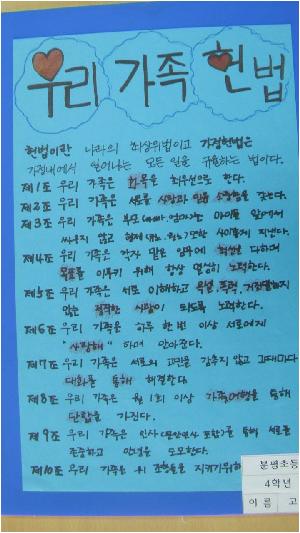 우리 가족 헌법
헌법이란 나라의 최상위법이고 가정헌법은
가정내에서 일어나는 모든 일을 규율하는 법이다.
제1조 우리 가족은 화목을 최우선으로 한다.
제2조 우리 가족은 서로 사랑과 믿음 소망을 갖는다.
제3조 우리 가족은 부모(아빠, 엄마)는 아이들 앞에서
싸우지 않고 형제 또한 사이좋게 지낸다.
제4조 우리 가족은 각자 맡은 임무에 최선을 다하며
목표를 이루기 위해 항상 열심히 노력한다.
제5조 우리 가족은 서로 이해하고 욕설, 폭력, 거짓말하지
않는 정직한 사람이 되도록 노력한다.
제6조 우리 가족은 하루 한번 이상 서로에게
"사랑해" 하며 안아준다.
제7조 우리 가족은 서로의 고민을 감추지 않고 그때마다
대화를 통해 해결한다.
제8조 우리 가족은 월 1회 이상 가족여행을 통해
단합을 가진다.
제9조 우리 가족은 인사(문안인사 포함)를 통해 서로를
존중하고 안녕을 도모한다.
제10조 우리 가족은 위 조항들을 지키기위하
분평초등
4학년
이름 고